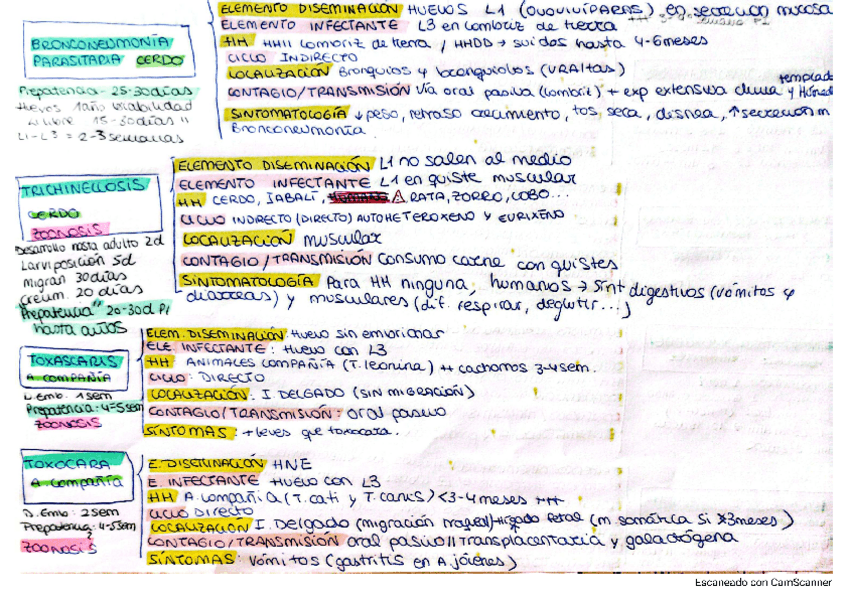 BRONCONEUMONÍA
PARASITARIA CERDO
Prepatencia - 25-30días
Huevos 1año viabilidad
L1-L3 = 2-3 semanas
ELEMENTO DISEMINACIÓN HUEVOS L1 (OVOVIVÍPAROS) en secreción mucosa
ELEMENTO INFECTANTE L3 en lombriz de tierra
HH HHII lombriz de tierra / HHDD → suidos hasta 4-6 meses
CICLO INDIRECTO
LOCALIZACIÓN Bronquios y bronquiolos (vRAltas)
CONTAGIO/TRANSMISIÓN Vía oral pasiva (lombriz) + exp extensiva clima templado y Húmedo
SINTOMATOLOGÍA ↓ peso, retraso crecimiento, tos, seca, disnea, ↑secreción m
Bronconeumonía.
TRICHINELLOSIS
CERDO
ZOONOSIS
Desarrollo hasta adulto 2d
Larviposición 5d
migran 30días
Crecim. 20 días
"Prepatencia" 20-30d PI
hasta años
ELEMENTO DISEMINACIÓN L1 no salen al medio
ELEMENTO INFECTANTE L1 en quiste muscular
HH CERDO, JABALÍ, RATA, ZORRO, LOBO...
CICLO INDIRECTO (DIRECTO) AUTOHETEROXENO Y EURIXENO
LOCALIZACIÓN muscular
CONTAGIO / TRANSMISIÓN Consumo carne con quistes
SINTOMATOLOGÍA Para HH ninguna, humanos → Sínt digestivos (vómitos y
diarreas) y musculares (dif. respirar, deglutir...)
TOXASCARIS
A. COMPAÑIA
D. Emb. 1sem
Prepatencia: 4-5sem
ZOONOSIS
ELEM. DISEMINACIÓN: Huevo sin embrionar
ELE. INFECTANTE: Huevo con L3
HH ANIMALES COMPAÑÍA (T. leonina) ++ cachorros 3-4sem.
CICLO: DIRECTO
LOCALIZACIÓN: I. DELGADO (SIN MIGRACIÓN)
CONTAGIO/TRANSMISIÓN: oral pasivo
SÍNTOMAS: + leves que toxocara.
TOXOCARA
A. Compañía
D. Emb: 2sem
Prepatencia: 4-5sem
ZOONOSIS
E. DISEMINACIÓN HNE
E. INFECTANTE Huevo con L3
HH A. compañía (T. cati y T. canis) <3-4meses ++
CICLO Directo
LOCALIZACIÓN I. Delgado (migración (m. somática si 3meses)
CONTAGIO/TRANSMISIÓN oral pasivo // Transplacentaria y galactógena
SÍNTOMAS: Vómitos (gastritis en A. jóvenes)
Escaneado con CamScanner